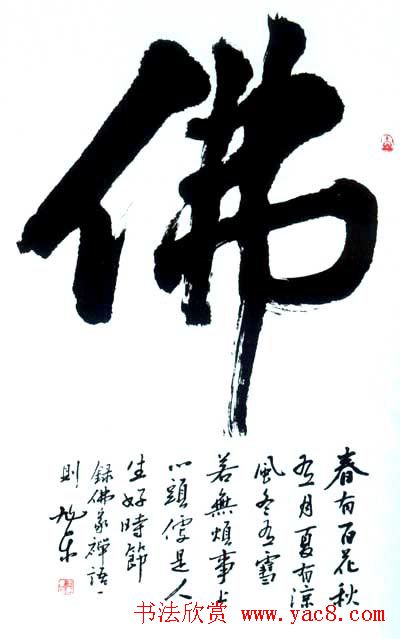 佛
春有百花秋
有月夏有涼
風冬有雪
若無煩事
心頭便是人
生好時節
録佛家禪語一
則 旭东
书法欣赏 www.yac8.com